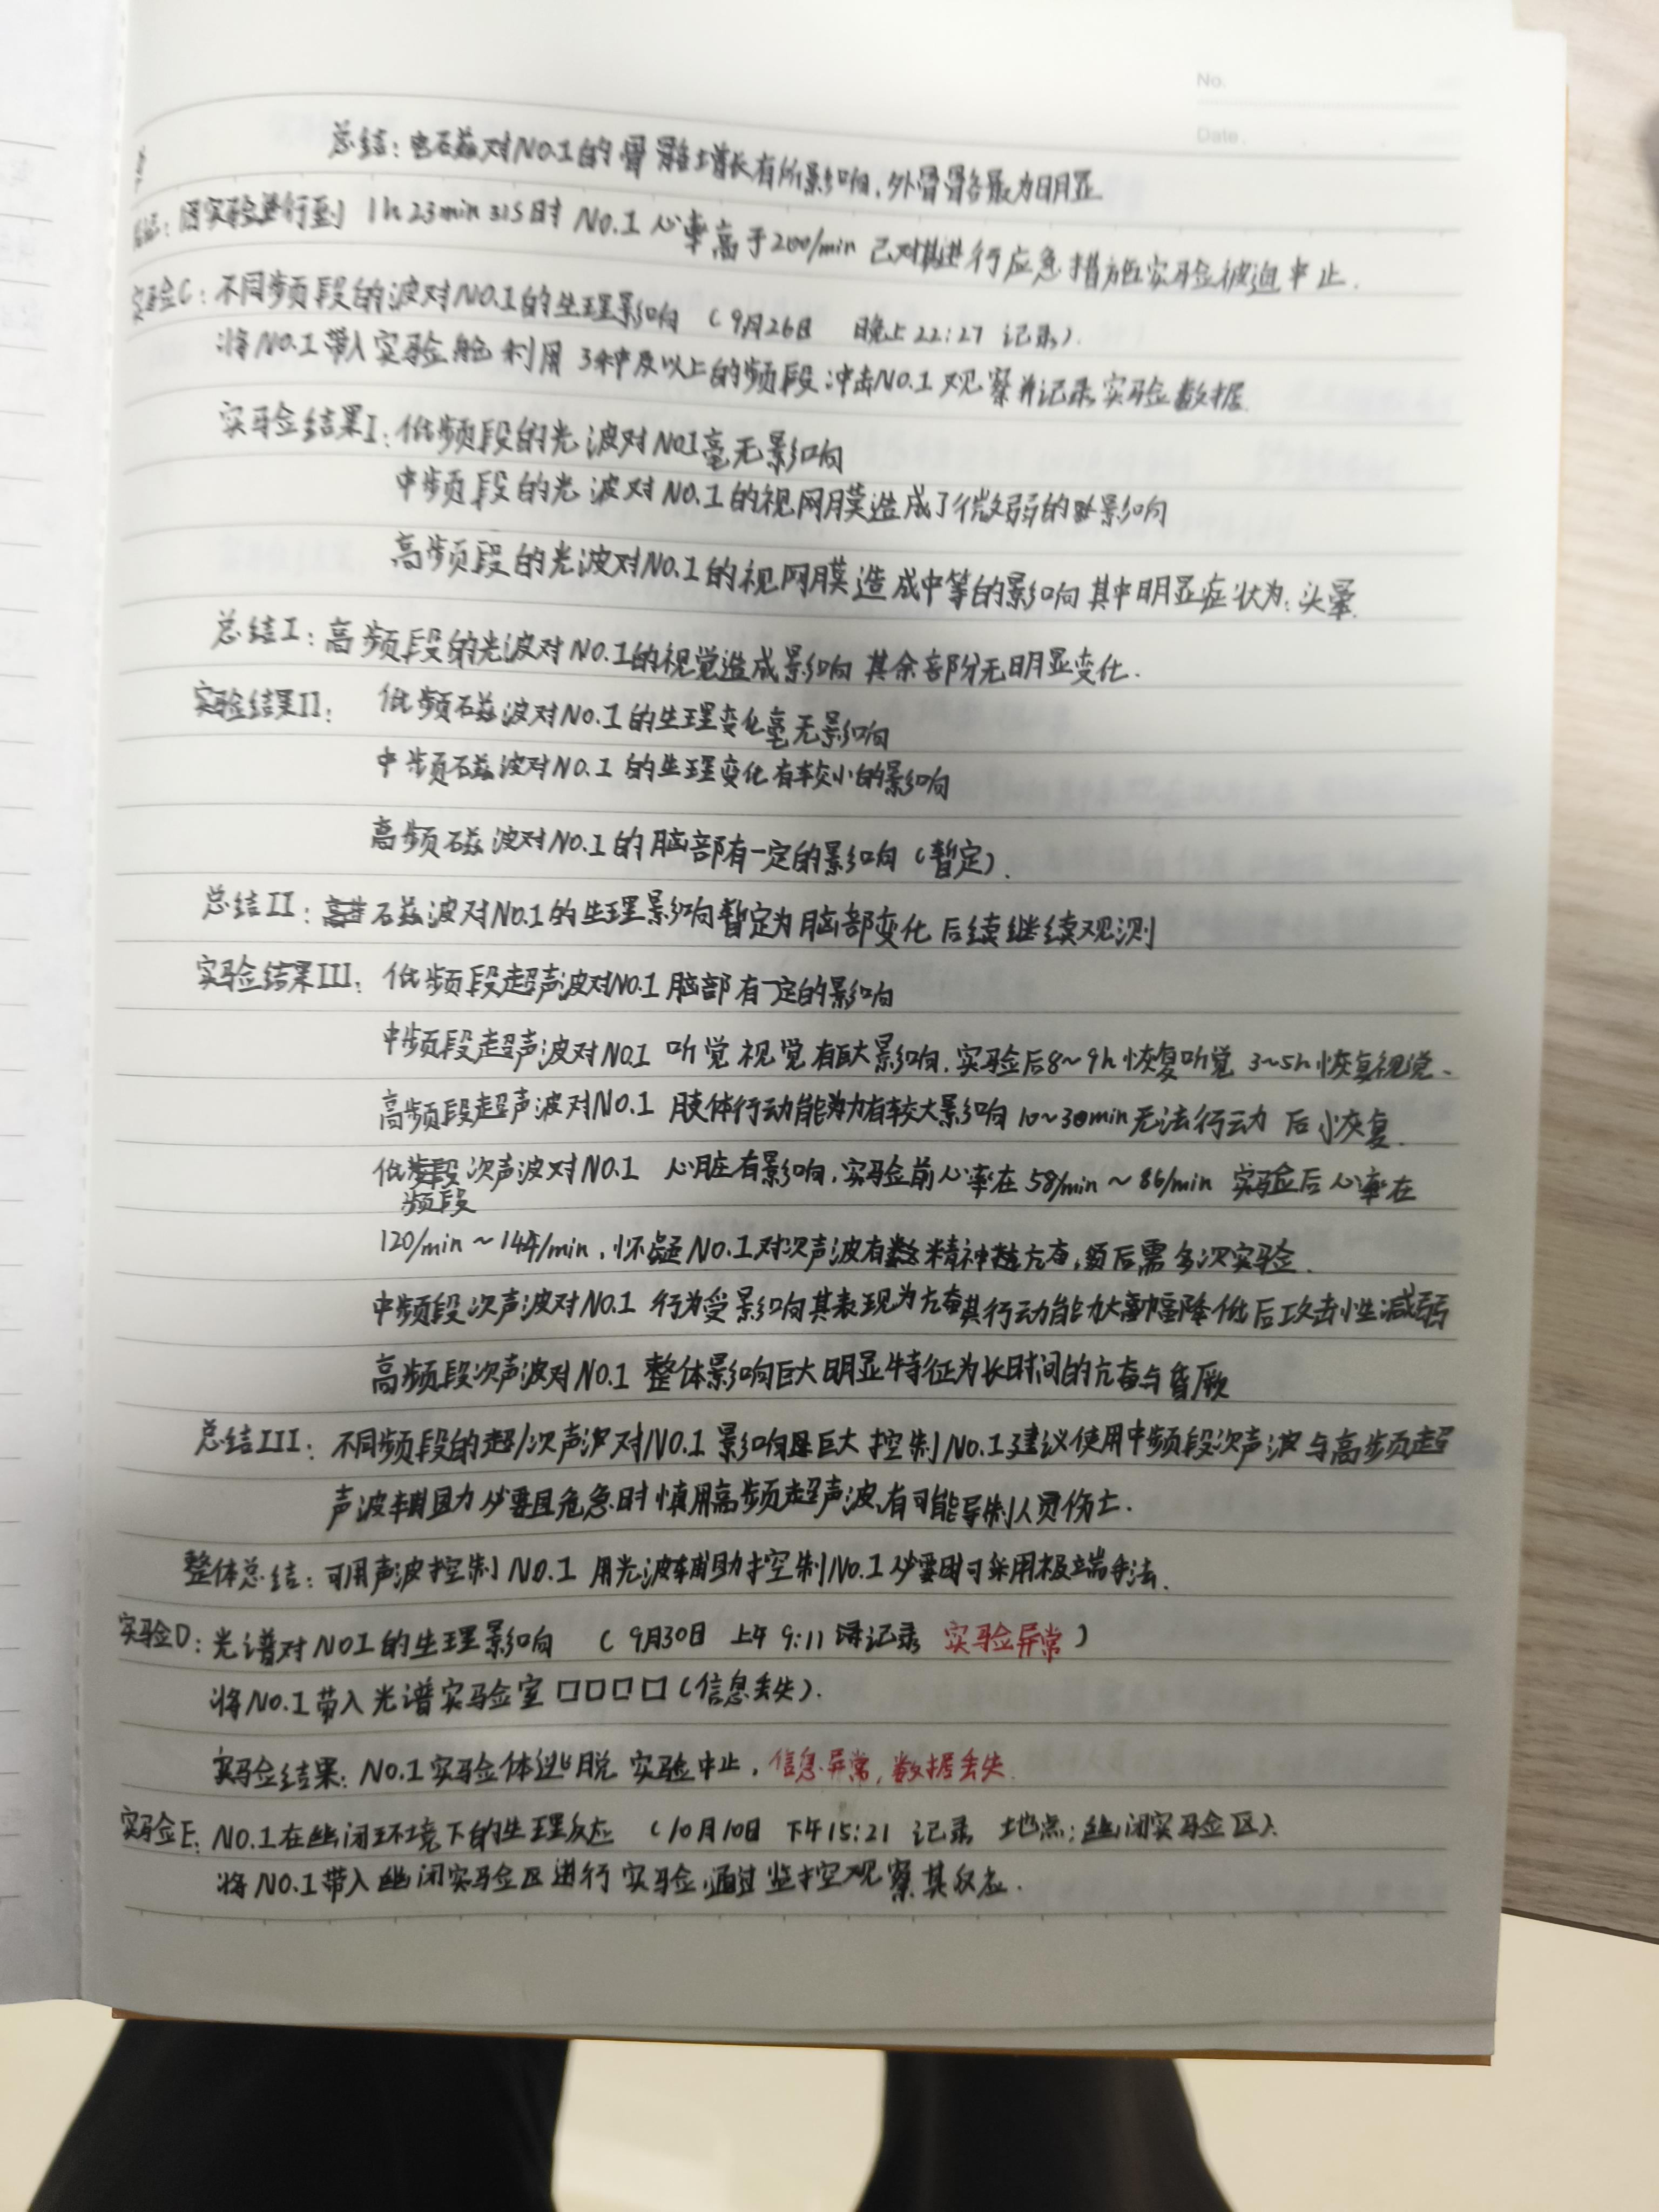 No.
Date.
总结：电磁对NO.1的骨骼增长有所影响，外骨骼最为明显
因实验进行到 1h 23min 31s时 NO.1 心率高于200/min 已对其进行应急措施实验被迫中止.
实验C：不同频段的波对NO.1的生理影响 （9月26日 晚上22:27 记录）.
将NO.1带入实验舱 利用 3种及以上的频段冲击NO.1 观察并记录实验数据.
实验结果I：低频段的光波对NO.1毫无影响
中频段的光波对NO.1的视网膜造成了微弱的影响
高频段的光波对NO.1的视网膜造成中等的影响 其中明显症状为：头晕.
总结I：高频段的光波对NO.1的视觉造成影响 其余部分无明显变化.
实验结果II： 低频磁波对NO.1的生理变化毫无影响
中频磁波对NO.1的生理变化有较小的影响
高频磁波对NO.1的脑部有一定的影响（暂定）.
总结II：磁波对NO.1的生理影响暂定为脑部变化 后续继续观测
实验结果III：低频段超声波对NO.1脑部有一定的影响
中频段超声波对NO.1 听觉视觉有巨大影响，实验后8~9h恢复听觉 3~5h恢复视觉.
高频段超声波对NO.1 肢体行动能力有较大影响 10~30min无法行动 后恢复.
低 次声波对NO.1 心脏有影响，实验前心率在58/min~86/min 实验后心率在
频段
120/min~144/min，怀疑NO.1对次声波有 精神 亢奋，须后需多次实验.
中频段次声波对NO.1 行为受影响其表现为亢奋其行动能力大幅降低后攻击性减弱
高频段次声波对NO.1 整体影响巨大明显特征为长时间的亢奋与昏厥
总结III：不同频段的超/次声波对NO.1影响巨大 控制NO.1建议使用中频段次声波与高频超
声波辅助 必要且危急时慎用高频超声波，有可能导制人员伤亡.
整体总结：可用声波控制NO.1 用光波辅助控制NO.1必要时可采用极端手法.
实验D：光谱对NO1的生理影响 （9月30日 上午9:11 记录 实验异常）
将NO.1带入光谱实验室 □□□□（信息丢失）.
实验结果：NO.1实验体逃脱 实验中止，信息异常，数据丢失.
实验E：NO.1在幽闭环境下的生理反应 （10月10日 下午15:21 记录 地点：幽闭实验区）.
将NO.1带入幽闭实验区进行实验，通过监控观察其反应.